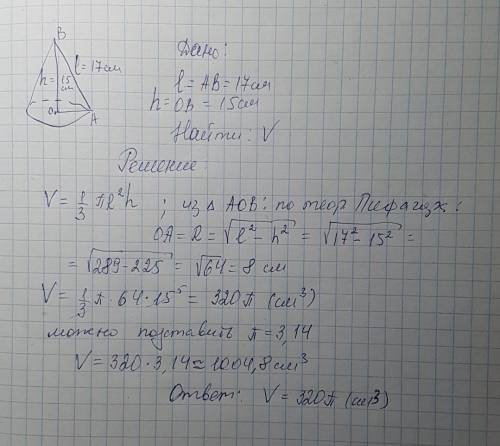 B
l = 17см
h = 15 см
O
A
Дано:
l = AB = 17см
h = OB = 15см
Найти: V
Решение
V = 1/3 πR²h ; из △ AOB: по теор Пифагора:
OA = R = √(l² − h²) = √(17² − 15²) =
= √(289 − 225) = √64 = 8 см
V = 1/3 π · 64 · 15⁵ = 320π (см³)
можно подставить π = 3,14
V = 320 · 3,14 ≈ 1004,8 см³
Ответ: V = 320π (см³)